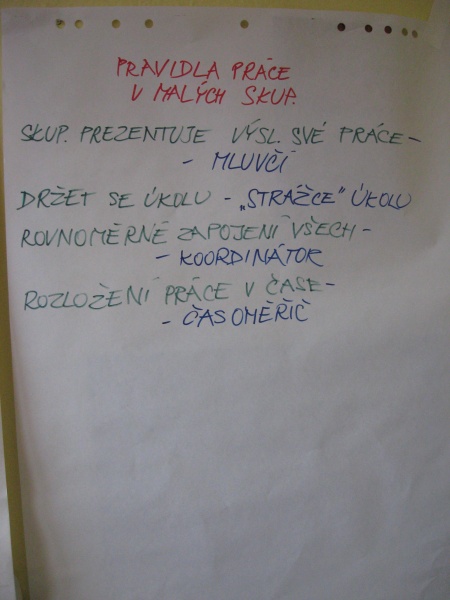 PRAVIDLA PRÁCE
V MALÝCH SKUP.
SKUP. PREZENTUJE VÝSL. SVÉ PRÁCE -
- MLUVČÍ
DRŽET SE ÚKOLU - „STRÁŽCE" ÚKOLU
ROVNOMĚRNÉ ZAPOJENÍ VŠECH -
- KOORDINÁTOR
ROZLOŽENÍ PRÁCE V ČASE -
- ČASOMĚŘIČ